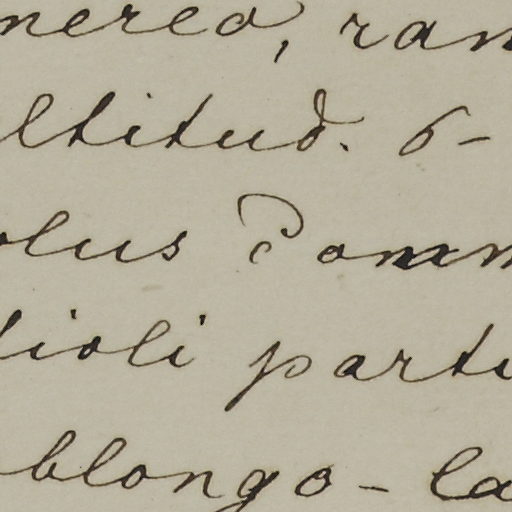 nerea, ram
ltitud. 6-
olus comm
tioli parti
blongo-la